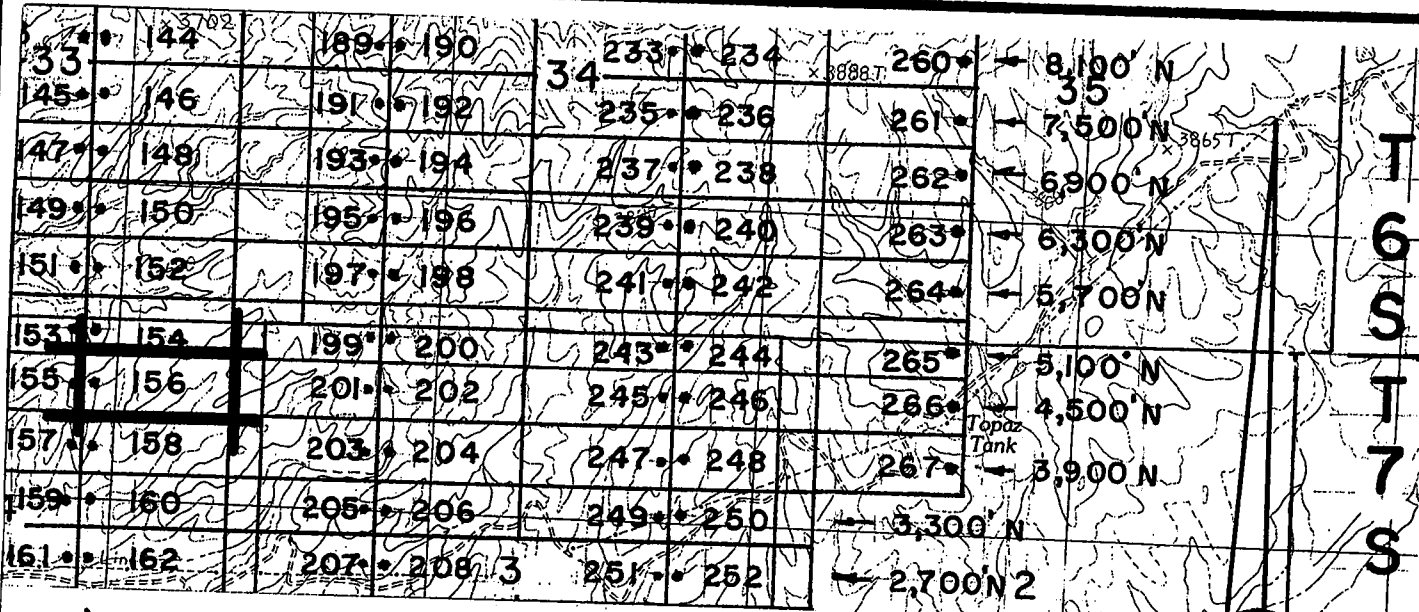 × 3702
33 144 189 190 34 233 234 260 8,100' N
× 3888T 35
145 146 191 192 235 236 261 7,500'N
× 3865T T
147 148 193 194 237 238 262 6,900'N
149 150 195 196 239 240 263 6,300'N 6
151 152 197 198 241 242 264 5,700'N S
153 154 199 200 243 244 265 5,100'N
155 156 201 202 245 246 266 4,500'N T
Topaz
Tank
157 158 203 204 247 248 267 3,900'N 7
159 160 205 206 249 250 3,300'N
161 162 207 208 3 251 252 2,700'N 2 S